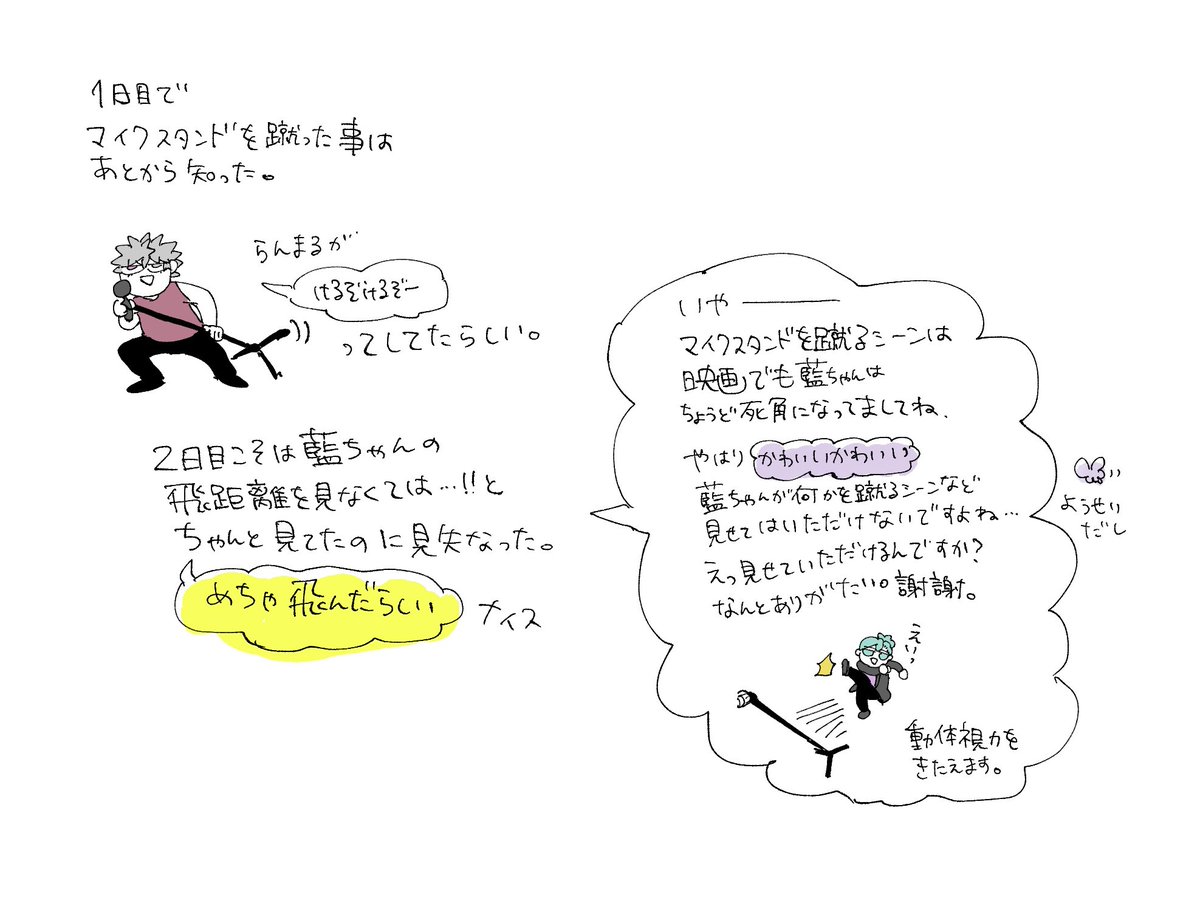 1日目で
マイクスタンドを蹴った事は
あとから知った。
らんまるが
けるぞけるぞー
ってしてたらしい。
2日目こそは藍ちゃんの
飛距離を見なくては…!!と
ちゃんと見てたのに見失なった。
めちゃ飛んだらしい
ナイス
いや―――
マイクスタンドを蹴るシーンは
映画でも藍ちゃんは
ちょうど死角になってましてね、
やはりかわいいかわいい
藍ちゃんが何かを蹴るシーンなど
見せてはいただけないですよね…
えっ見せていただけるんですか?
なんとありがたい。謝謝。
えいっ
動体視力を
きたえます。
ようせい
だし